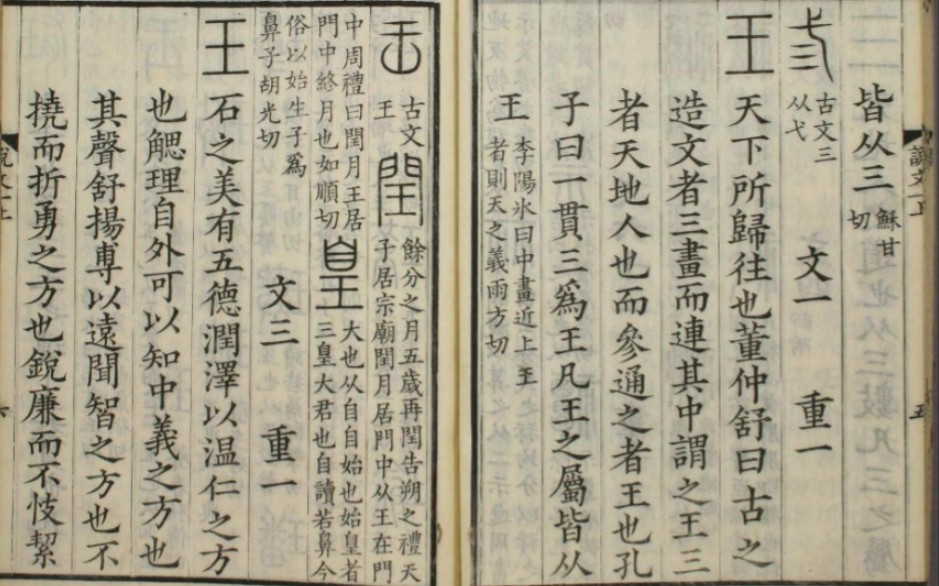 皆从三穌甘切
弎古文三从弋 文一 重一
王天下所歸往也董仲舒曰古之
造文者三畫而連其中謂之王三
者天地人也而參通之者王也孔
子曰一貫三爲王凡王之屬皆从
王李陽冰曰中畫近上王者則天之義雨方切
古文王閏餘分之月五歲再閏告朔之禮天子居宗廟閏月居門中从王在門
中周禮曰閏月王居門中終月也如順切皇大也从自自始也始皇者三皇大君也自讀若鼻今
俗以始生子爲鼻子胡光切 文三 重一
玉石之美有五德潤澤以温仁之方
也䚡理自外可以知中義之方也
其聲舒揚尃以遠聞智之方也不
撓而折勇之方也銳廉而不忮絜